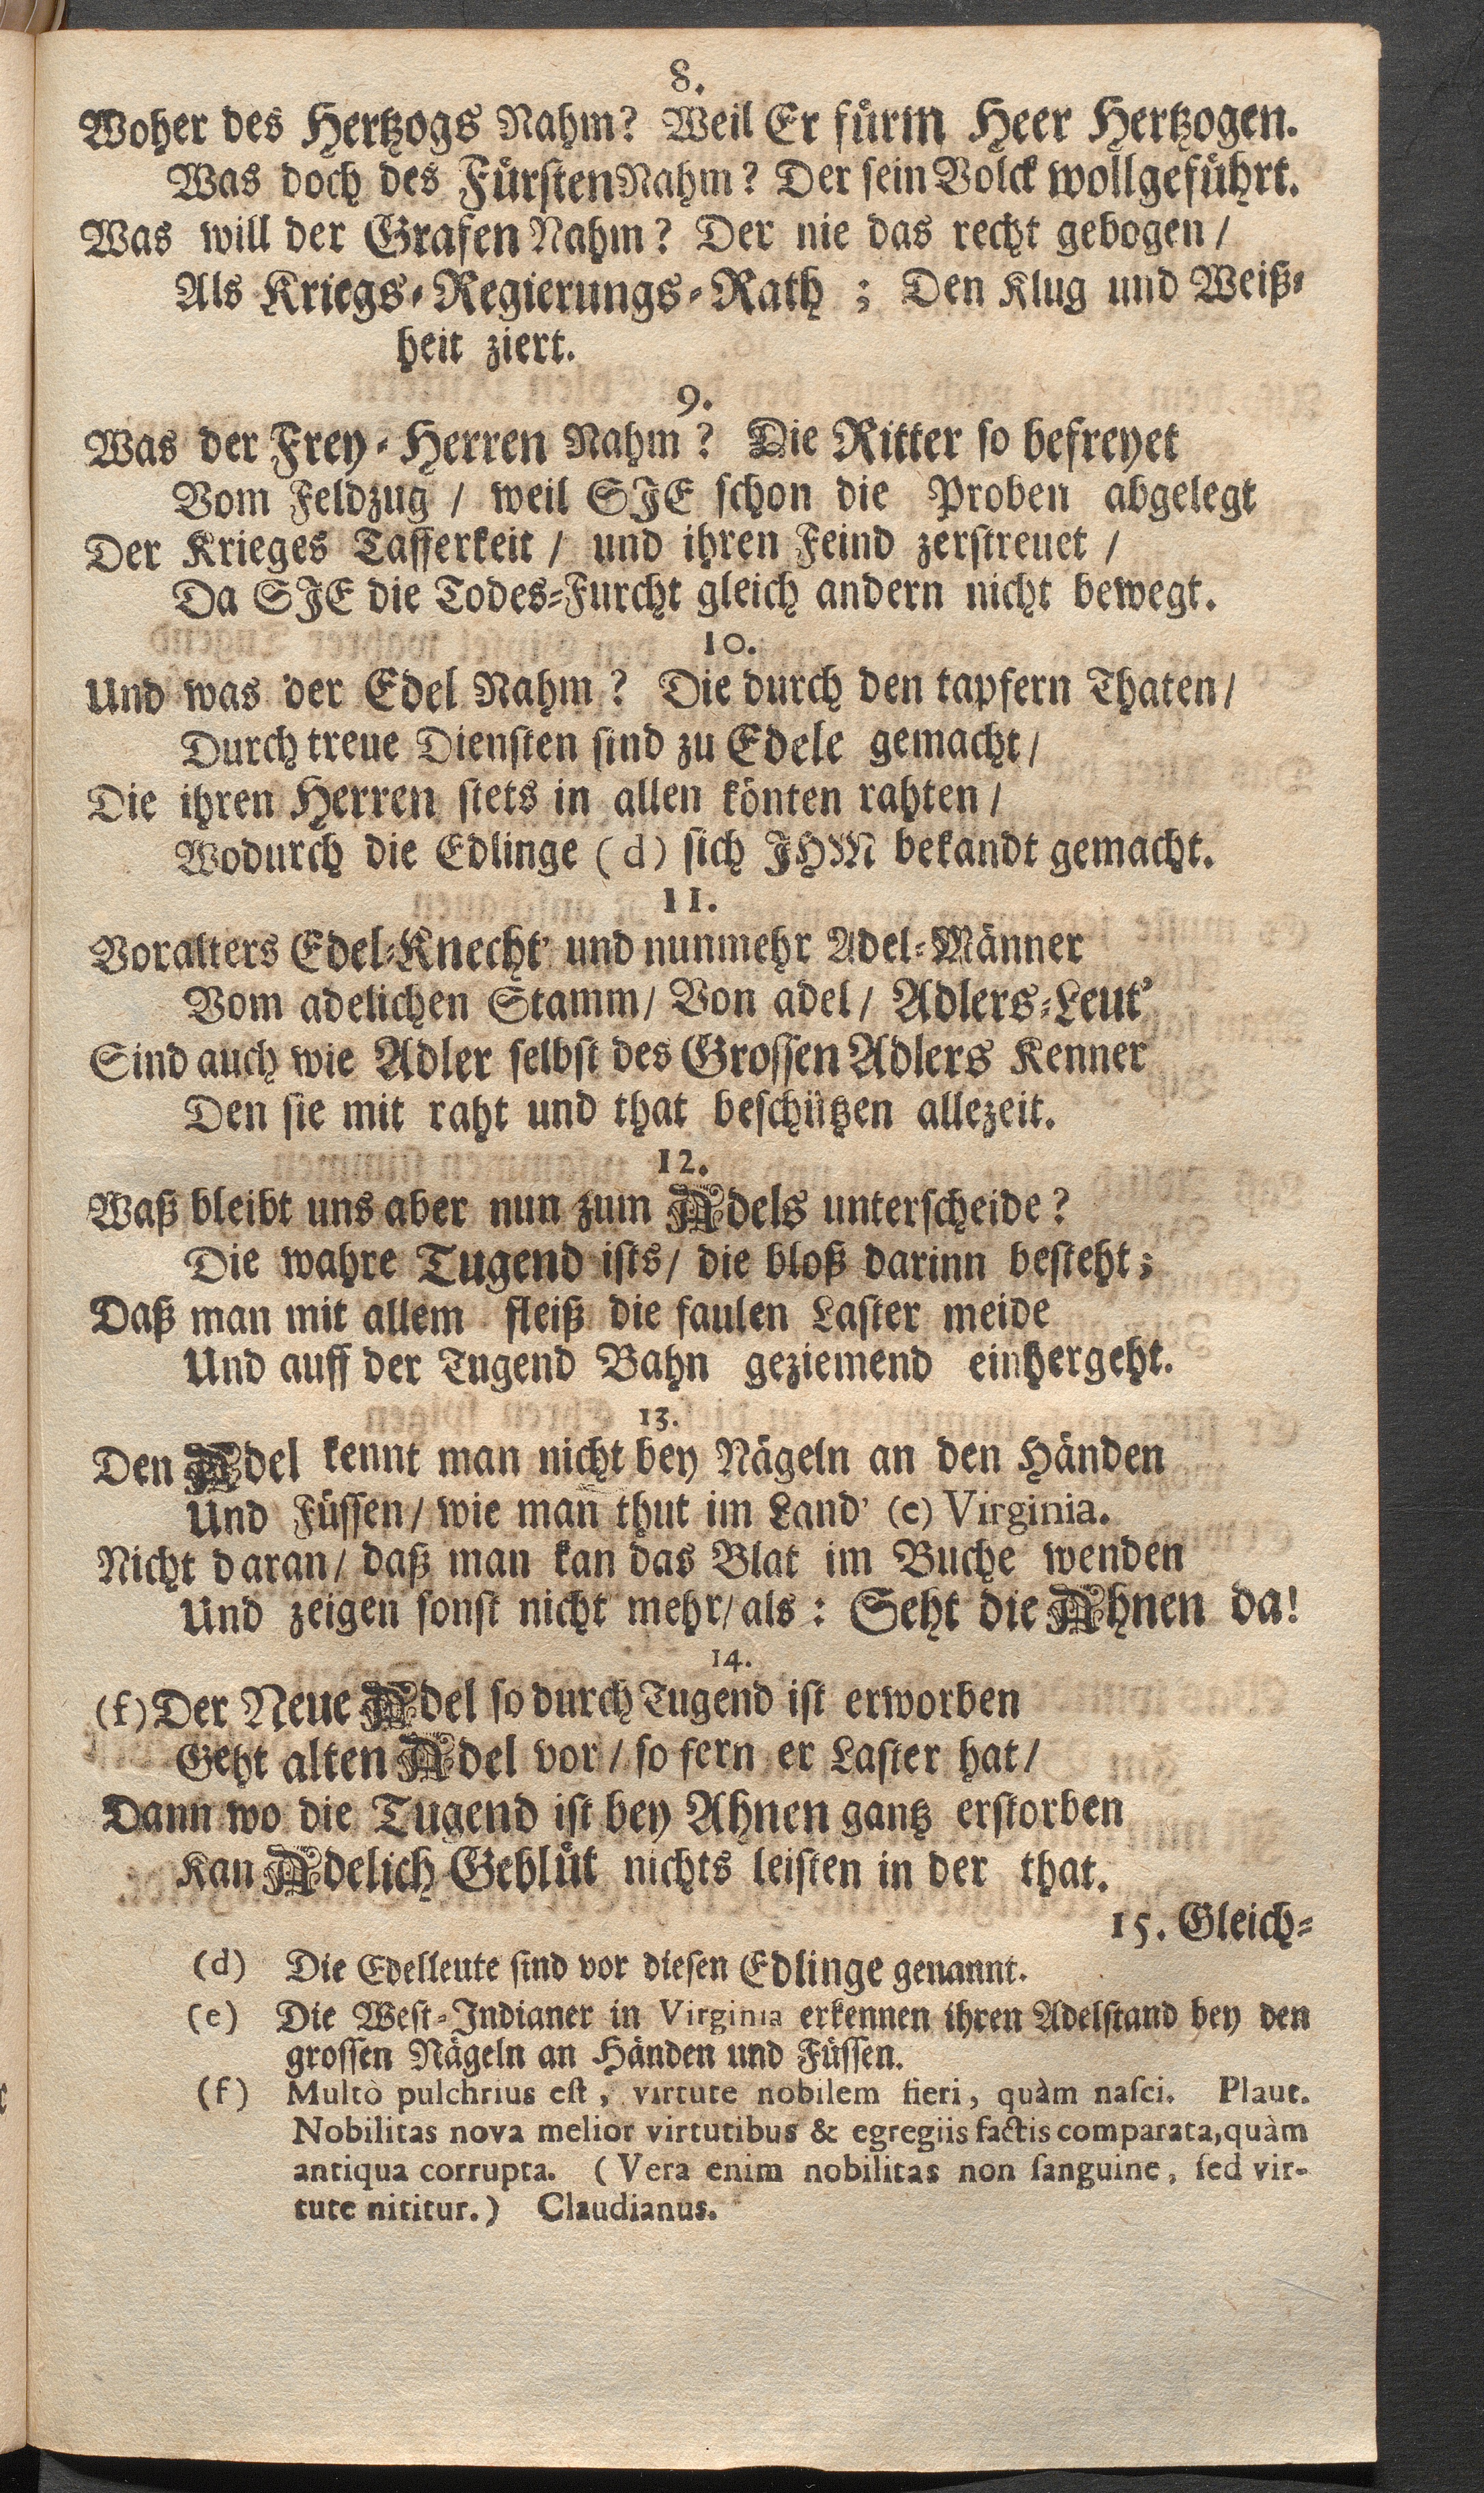 8.
Woher des Hertzogs Nahm? Weil Er fürm Heer Hertzogen.
Was doch des Fürsten Nahm? Der sein Volck wollgeführt.
Was will der Grafen Nahm? Der nie das recht gebogen/
Als Kriegs-Regierungs-Rath; Den Klug und Weiß-
heit ziert.
9.
Was der Frey-Herren Nahm? Die Ritter so befreyet
Vom Feldzug / weil SJE schon die Proben abgelegt
Der Krieges Tafferkeit / und ihren Feind zerstreuet /
Da SJE die Todes-Furcht gleich andern nicht bewegt.
10.
Und was der Edel Nahm? Die durch den tapfern Thaten/
Durch treue Diensten sind zu Edele gemacht/
Die ihren Herren stets in allen könten rahten/
Wodurch die Edlinge (d) sich JHM bekandt gemacht.
11.
Voralters Edel-Knecht' und nunmehr Adel-Männer
Vom adelichen Stamm/ Von adel/ Adlers-Leut'
Sind auch wie Adler selbst des Grossen Adlers Kenner
Den sie mit raht und that beschützen allezeit.
12.
Waß bleibt uns aber nun zum Adels unterscheide?
Die wahre Tugend ists/ die bloß darinn besteht;
Daß man mit allem fleiß die faulen Laster meide
Und auff der Tugend Bahn geziemend einhergeht.
13.
Den Adel kennt man nicht bey Nägeln an den Händen
Und Füssen/ wie man thut im Land' (e) Virginia.
Nicht daran/ daß man kan das Blat im Buche wenden
Und zeigen sonst nicht mehr/ als: Seht die Ahnen da!
14.
(f) Der Neue Adel so durch Tugend ist erworben
Geht alten Adel vor/ so fern er Laster hat/
Dann wo die Tugend ist bey Ahnen gantz erstorben
Kan Adelich Geblüt nichts leisten in der that.
15. Gleich-
(d) Die Edelleute sind vor diesen Edlinge genannt.
(e) Die West-Indianer in Virginia erkennen ihren Adelstand bey den
grossen Nägeln an Händen und Füssen.
(f) Multò pulchrius eſt, virtute nobilem fieri, quàm naſci. Plaut.
Nobilitas nova melior virtutibus & egregiis factis comparata, quàm
antiqua corrupta. (Vera enim nobilitas non ſanguine, ſed vir-
tute nititur.) Claudianus.